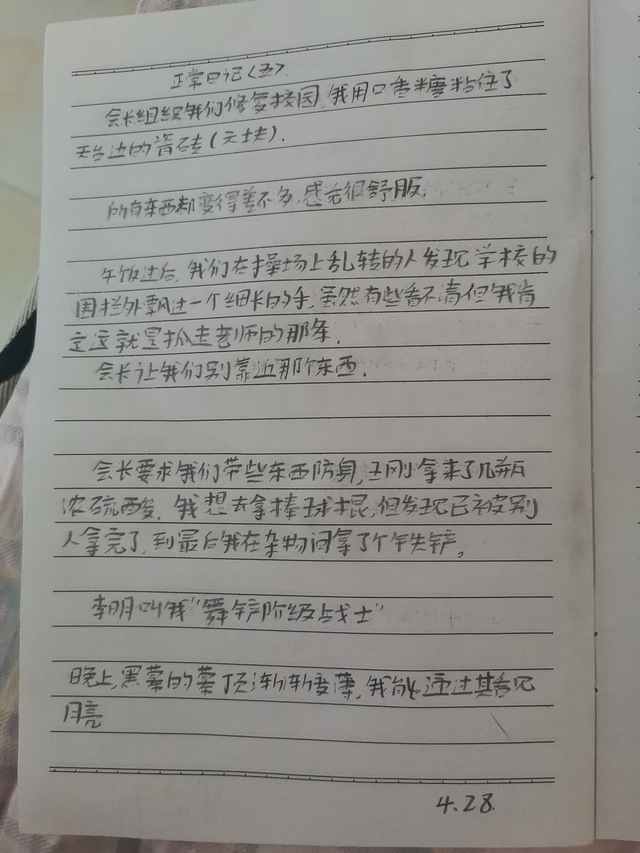 正常日记〈五〉.
会长组织我们修复校园,我用口香糖粘住了
天台边的瓷砖(大块).
所有东西都变得差不多,感觉很舒服.
午饭过后,我们在操场上乱转的人发现学校的
围栏外飘过一个细长的手,虽然有些看不清但我肯
定这就是抓走老师的那条.
会长让我们别靠近那个东西.
会长要求我们带些东西防身,王刚拿来了几瓶
浓硫酸,我想去拿棒球棍,但发现已被别
人拿完了,到最后我在杂物间拿了个铁铲。
李明叫我"舞铲阶级战士"
晚上,黑幕的幕顶渐渐变薄,我能透过其看见
月亮
4.28.